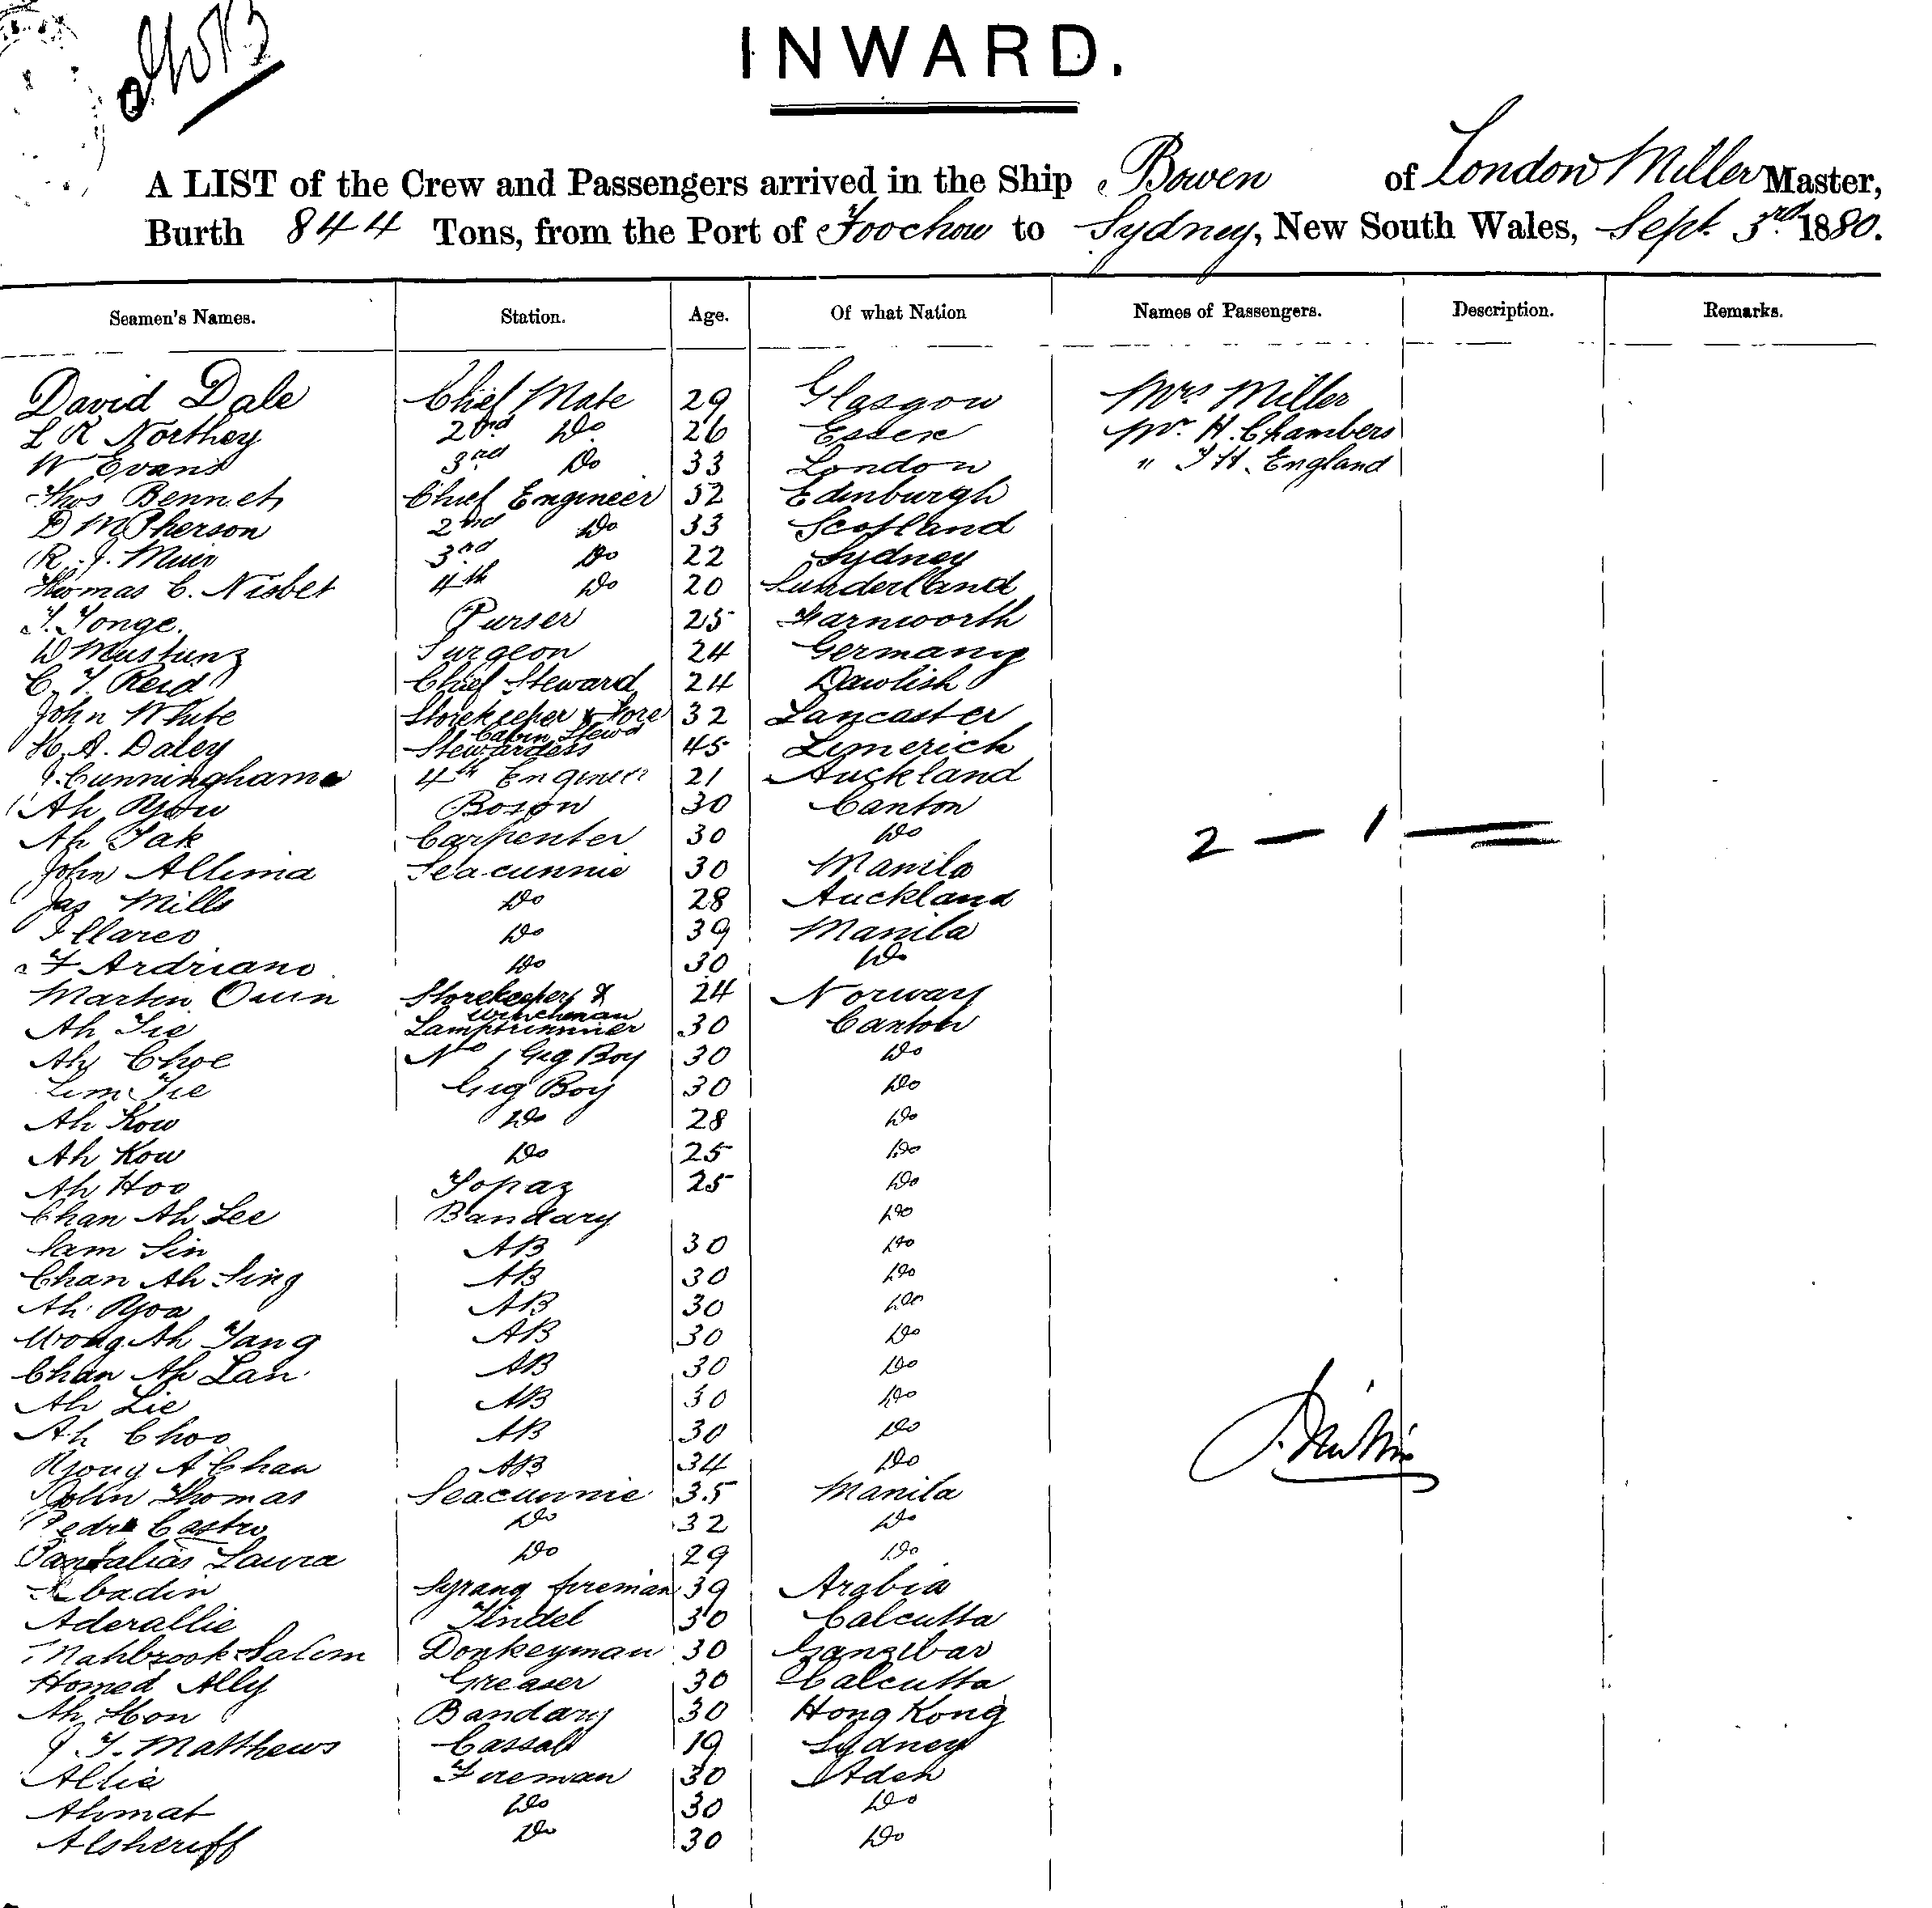 INWARD.
A LIST of the Crew and Passengers arrived in the Ship Bowen of London Miller Master,
Burth 844 Tons, from the Port of Foochow to Sydney, New South Wales, Sept. 3rd 1880.
Seamen's Names. Station. Age. Of what Nation Names of Passengers. Description. Remarks.
David Dale Chief Mate 29 Glasgow Mrs Miller
L R Northey 2nd Do 26 Essex Mr. H. Chambers
W Evans 3rd Do 33 London " J H. England
Thos Bennet Chief Engineer 52 Edinburgh
D McPherson 2nd Do 33 Scotland
R. J. Muir 3rd Do 22 Sydney
Thomas C. Nisbet 4th Do 20 Sunderland
Purser 25 Farnworth
W Surgeon 24 Germany
C. T. Reid Chief Steward 24 Dawlish
John White Storekeeper & Fore Cabin Stewd 32 Lancaster
H. A. Daley Stewardess 45 Limerick
J. Cunninghame 4th Engineer 21 Auckland
Ah Bosun 30 Canton
Ah Carpenter 30 Do
John Seacunnie 30 Manila
Jas Mills Do 28 Auckland
Do 39 Manila
F Ardriano Do 30 Do
Martin Storekeeper & Winchman 24 Norway
Ah Lamptrimmer 30 Canton
Ah Choe No 1 Gig Boy 30 Do
Gig Boy 30 Do
Ah Kow Do 28 Do
Ah Kow Do 25 Do
Ah Hoo Topaz 25 Do
Chan Ah Lee Bandary Do
Sam Sin AB 30 Do
Chan Ah Sing AB 30 Do
Ah AB 30 Do
Wong Ah AB 30 Do
Chan Ah Lan AB 30 Do
Ah Lie AB 30 Do
Ah Choo AB 30 Do
A Chan AB 34 Do
John Thomas Seacunnie 35 Manila
Pedro Castro Do 32 Do
Laura Do 29 Do
Syrang fireman 39 Arabia
Aderallie Tindel 30 Calcutta
Salim Donkeyman 30 Zanzibar
Homed Ally Greaser 30 Calcutta
Ah Hon Bandary 30 Hong Kong
J. T. Matthews Cassab 19 Sydney
Allie Fireman 30 Aden
Ahmat Do 30 Do
Alsheriff Do 30 Do
2 — 1 —